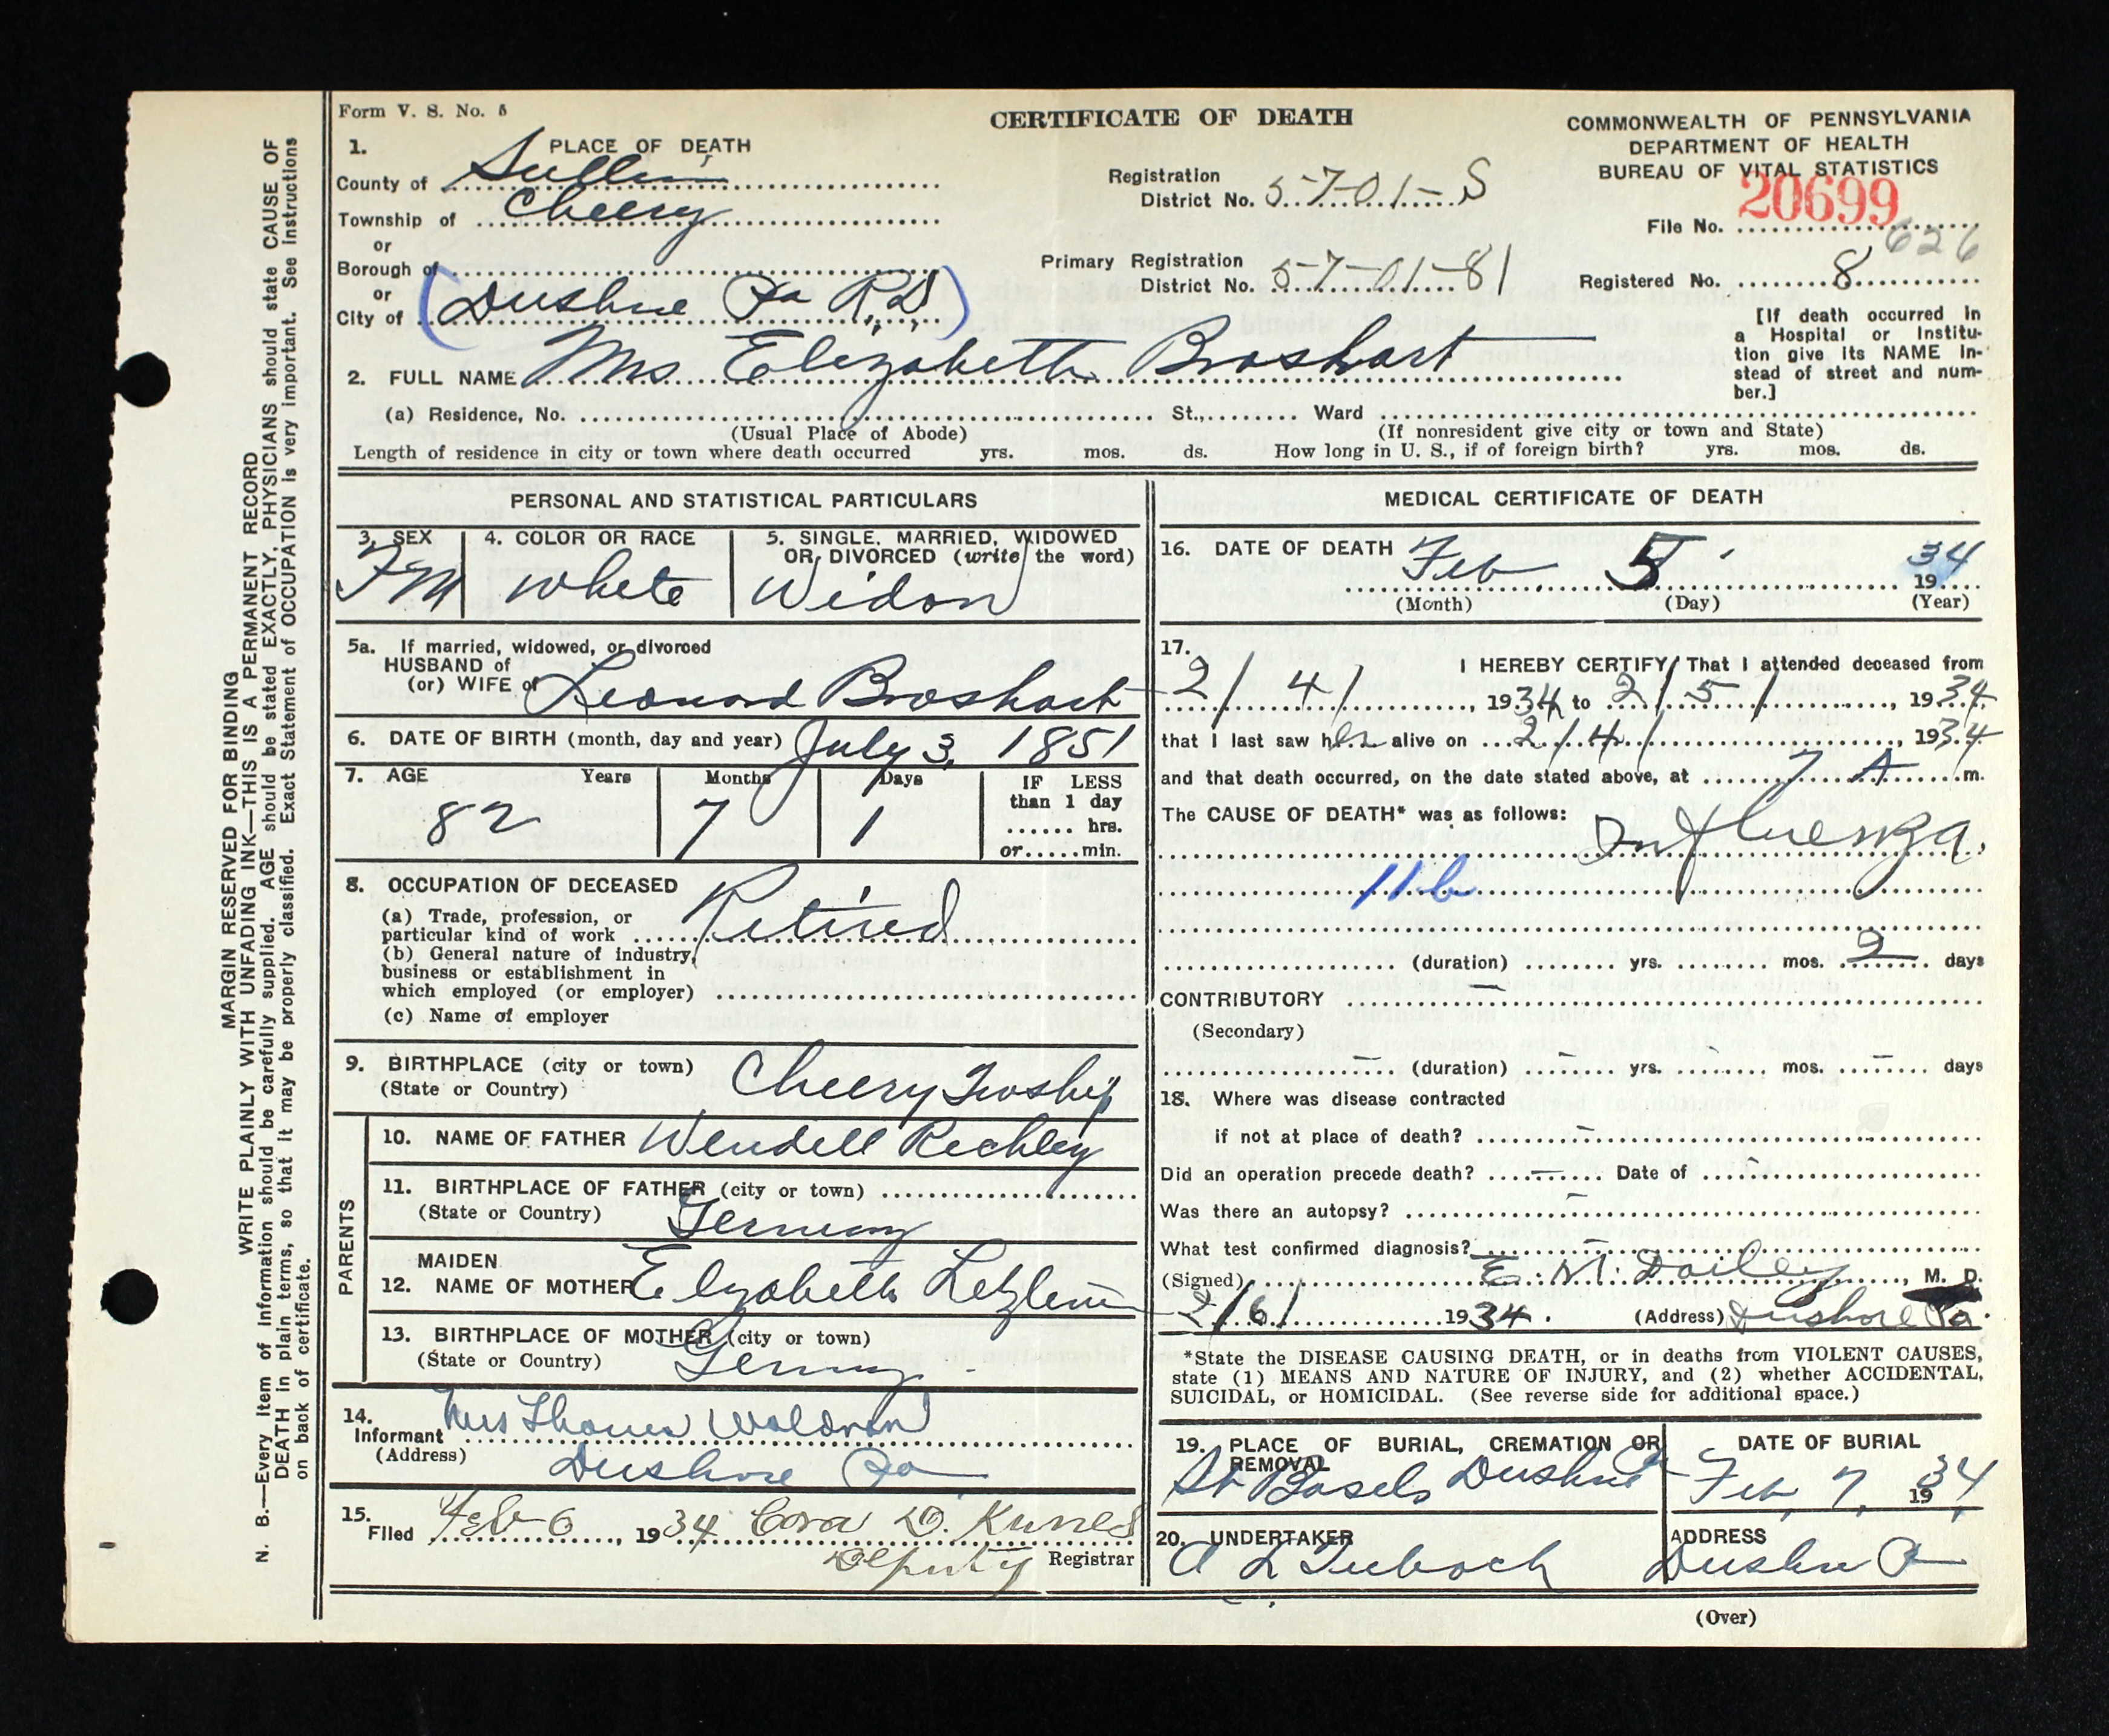 Form V. S. No. 5
CERTIFICATE OF DEATH
COMMONWEALTH OF PENNSYLVANIA
DEPARTMENT OF HEALTH
BUREAU OF VITAL STATISTICS
1. PLACE OF DEATH
County of
Township of Cheery
or
Borough of
or
City of (Dushore Pa R.D)
Registration
District No. 5-7-01-S
Primary Registration
District No. 5-7-01-81
File No. 20699
626
Registered No. 8
[If death occurred in
a Hospital or Institu-
tion give its NAME in-
stead of street and num-
ber.]
2. FULL NAME Mrs Elizabeth Broshart
(a) Residence, No. St., Ward
(Usual Place of Abode) (If nonresident give city or town and State)
Length of residence in city or town where death occurred yrs. mos. ds. How long in U. S., if of foreign birth? yrs. mos. ds.
PERSONAL AND STATISTICAL PARTICULARS
3. SEX 4. COLOR OR RACE 5. SINGLE, MARRIED, WIDOWED
OR DIVORCED (write the word)
FM White Widow
5a. If married, widowed, or divorced
HUSBAND of
(or) WIFE of Leonard Broshart
6. DATE OF BIRTH (month, day and year) July 3, 1851
7. AGE Years Months Days IF LESS
than 1 day
hrs.
or min.
82 7 1
8. OCCUPATION OF DECEASED
(a) Trade, profession, or
particular kind of work Retired
(b) General nature of industry,
business or establishment in
which employed (or employer)
(c) Name of employer
9. BIRTHPLACE (city or town)
(State or Country) Cheery Twshp
PARENTS
10. NAME OF FATHER Wendell Rechley
11. BIRTHPLACE OF FATHER (city or town)
(State or Country) Germany
MAIDEN
12. NAME OF MOTHER Elizabeth
13. BIRTHPLACE OF MOTHER (city or town)
(State or Country) Germany
14. Informant Mrs Thomas Waldron
(Address) Dushore Pa
15. Filed Feb 6, 1934 Cora D.
Deputy Registrar
MEDICAL CERTIFICATE OF DEATH
16. DATE OF DEATH Feb 5 1934
(Month) (Day) (Year)
17. I HEREBY CERTIFY, That I attended deceased from
2/4/, 1934 to 2/5/, 1934
that I last saw her alive on 2/4/, 1934
and that death occurred, on the date stated above, at 7 A m.
The CAUSE OF DEATH* was as follows:
Influenza
11b
(duration) yrs. mos. 2 days
CONTRIBUTORY —
(Secondary)
(duration) — yrs. — mos. — days
18. Where was disease contracted
if not at place of death? —
Did an operation precede death? — Date of —
Was there an autopsy? —
What test confirmed diagnosis? —
(Signed) E. M. Dailey, M. D.
2/6/ 1934. (Address) Dushore Pa.
*State the DISEASE CAUSING DEATH, or in deaths from VIOLENT CAUSES,
state (1) MEANS AND NATURE OF INJURY, and (2) whether ACCIDENTAL,
SUICIDAL, or HOMICIDAL. (See reverse side for additional space.)
19. PLACE OF BURIAL, CREMATION OR
REMOVAL
St Basels Dushore Pa
DATE OF BURIAL
Feb. 7, 1934
20. UNDERTAKER
A L
ADDRESS
Dushore Pa
(Over)
MARGIN RESERVED FOR BINDING
WRITE PLAINLY WITH UNFADING INK—THIS IS A PERMANENT RECORD
N. B.—Every item of information should be carefully supplied. AGE should be stated EXACTLY, PHYSICIANS should state CAUSE OF
DEATH in plain terms, so that it may be properly classified. Exact Statement of OCCUPATION is very important. See instructions
on back of certificate.